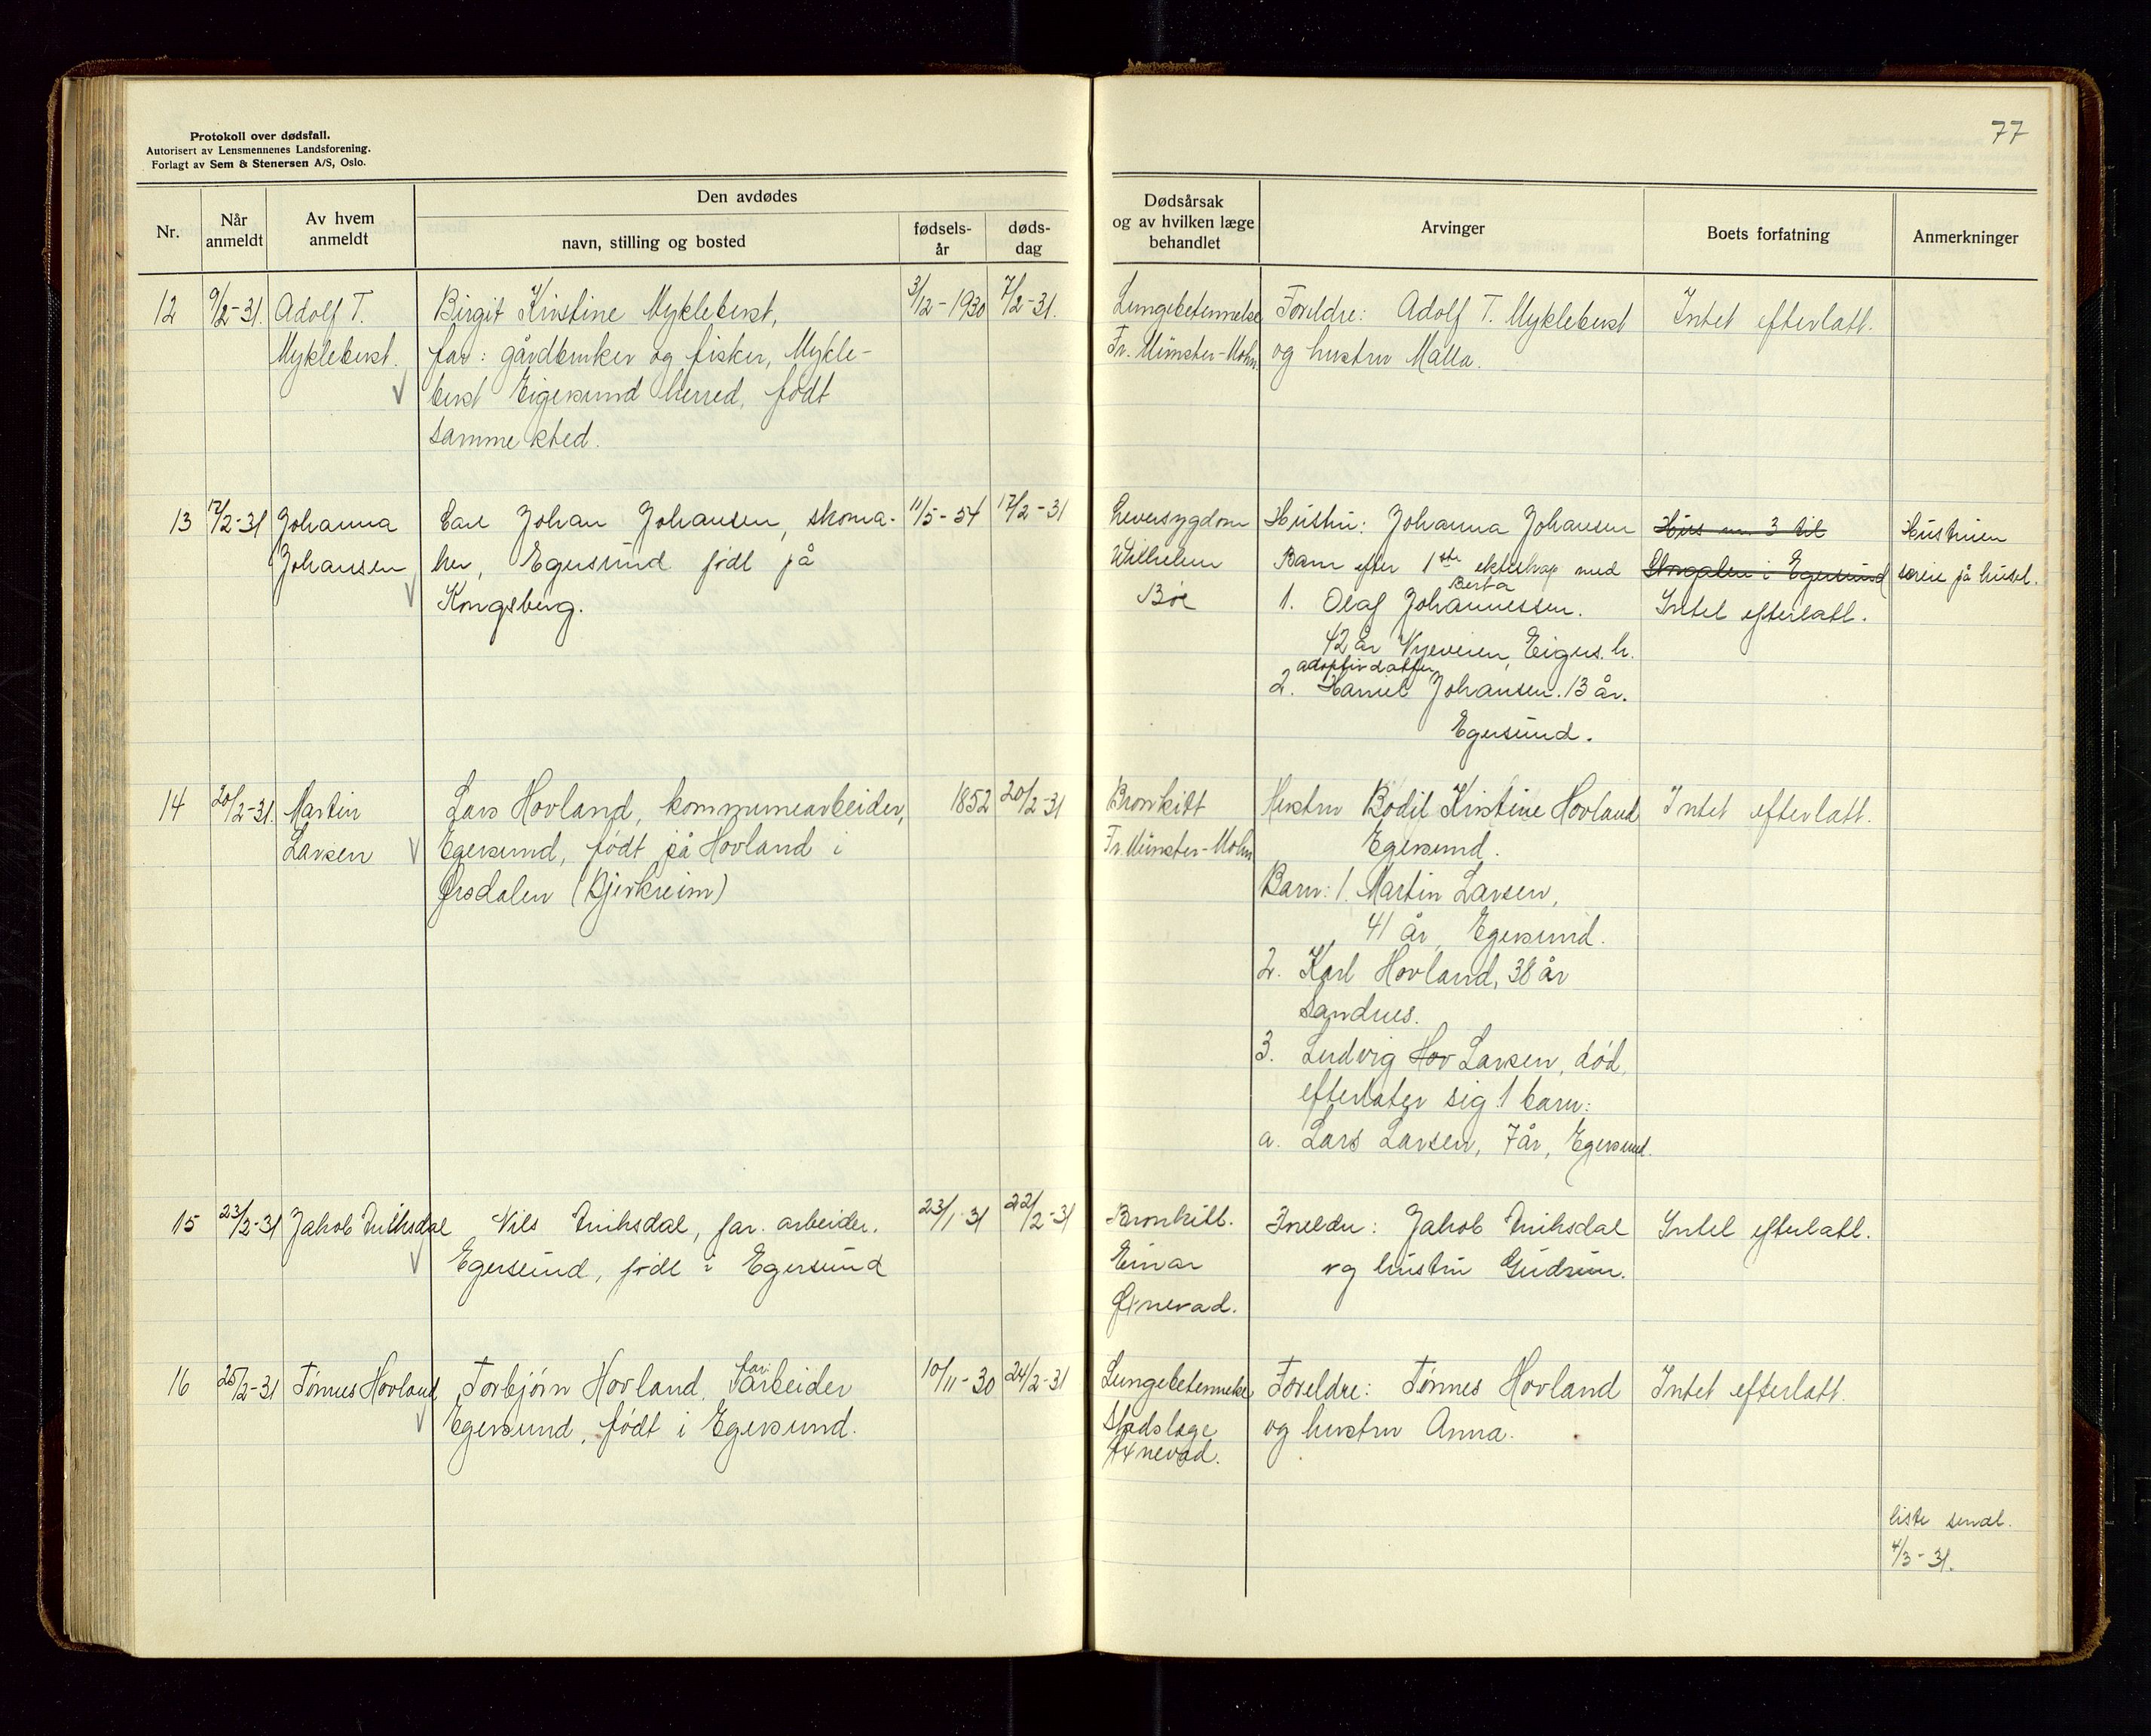 77
Protokoll over dødsfall.
Autorisert av Lensmennenes Landsforening.
Forlagt av Sem & Stenersen A/S, Oslo.
Nr.
Når anmeldt
Av hvem anmeldt
Den avdødes
navn, stilling og bosted
fødsels-år
døds-dag
Dødsårsak og av hvilken læge behandlet
Arvinger
Boets forfatning
Anmerkninger
12
9/2-31.
Adolf T.
Myklebust.
Birgit Kristine Myklebust,
far: gårdbruker og fisker, Mykle-
bust Eigersund herred, født
samme sted.
3/12-1930
7/2-31.
Lungebetennelse
Fr. Münster-Mohn
Foreldre: Adolf T. Myklebust
og hustru Malla.
Intet efterlatt.
13
17/2-31
Johanna
Johansen
Carl Johan Johansen, skoma-
ker, Egersund født på
Kongsberg.
11/5-54
17/2-31
Leversygdom
Wilhelm
Bøe
Hustru: Johanna Johansen
Barn efter 1ste ekteskap med
Berta
1. Olaf Johannessen.
42 år Nyeveien, Eigers. h.
adoptivdatter
2. Johansen. 13 år.
Egersund.
Hus nr 3 til
i Egersund
Intet efterlatt.
Hustruen
på huset.
14
20/2-31.
Martin
Larsen
Lars Hovland, kommunearbeider,
Egersund, født på Hovland i
Ørsdalen (Bjerkreim)
1852
20/2-31
Bronkitt
Fr. Münster-Mohn
Hustru Bodil Kristine Hovland
Egersund.
Barn: 1. Martin Larsen,
41 år, Egersund.
2. Karl Hovland, 38 år
Sandnes.
3. Ludvig Hov Larsen, død,
efterlater sig 1 barn:
a. Lars Larsen, 7 år, Egersund.
Intet efterlatt.
15
23/2-31
Jakob
Nils far. arbeider.
Egersund, født i Egersund
23/1-31
22/2-31
Bronkitt.
Einar
Øxnevad.
Foreldre: Jakob
og hustru Gudrun.
Intet efterlatt.
16
25/2-31
Tønnes Hovland
Torbjørn Hovland, far: arbeider
Egersund, født i Egersund.
10/11-30
24/2-31
Lungebetennelse
Stadslæge
Øxnevad.
Foreldre: Tønnes Hovland
og hustru Anna.
Intet efterlatt.
liste sendt.
4/3-31.